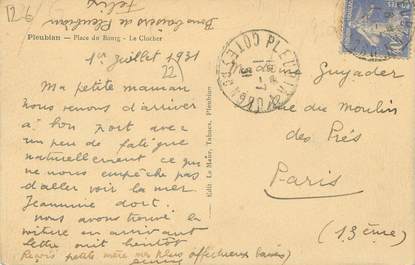 126
Bons baisers de Pleubian
Felix
Pleubian – Place du Bourg – Le Clocher
1er Juillet 1931
(22)
Ma petite maman
nous venons d'arriver
à bon port avec
un peu de fatigue
naturellement ce qui
ne nous empêche pas
d'aller voir la mer
Jeannine dort.
nous avons trouvé la
voiture en arrivant
lettre suit bientôt
Reçois petite mère mes plus affectueux baisers
Edit. Le Maire, Tabacs, Pleubian
PLEUBIAN
COTES DU NORD
Madame Guyader
rue du Moulin
des Prés
Paris
(13ème)